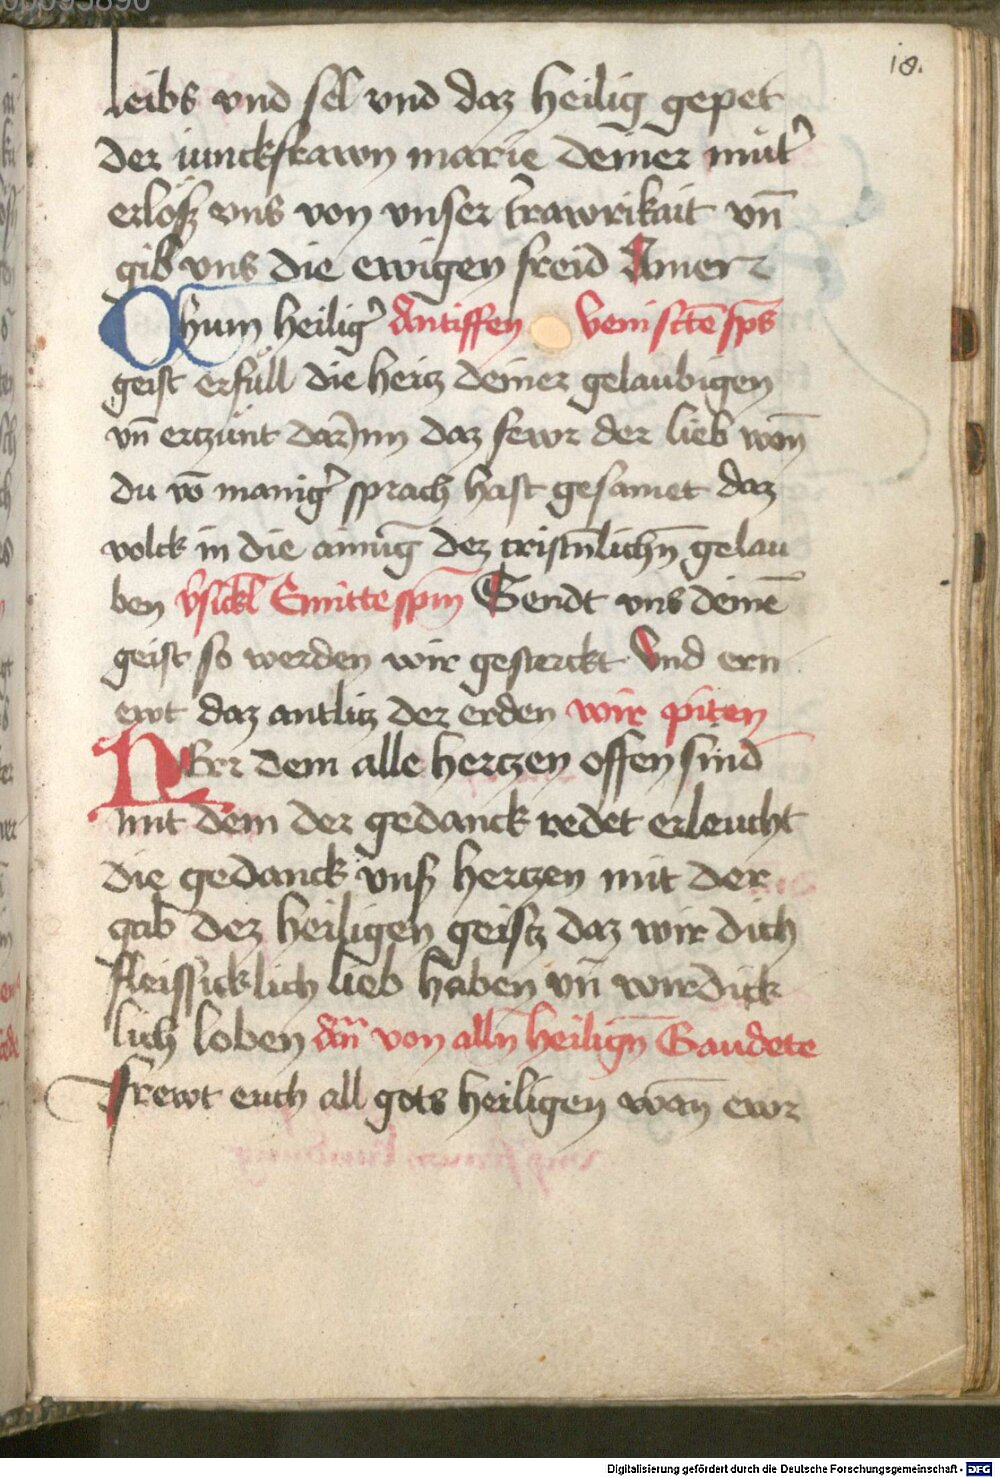 18.
leibs vnd sel vnd daz heilig gepet
der iunckfrawn marie deiner muͤt̓
erloͤß vns von vnser trawrikait vn̄
gib vns die ewigen freid Amen
O kum heilig̓ Antiffen Veni sctē sps̄
geist erfuͤll die hertz deiner gelaubigen
vn̄ erczuͤnt darinn daz fewr der lieb won̄
du vō manig̓ sprach hast gesamet daz
volck in die ainuḡ dez cristnlichn̄ gelau
ben v̓sickl Emitte spm̄ Sendt vns deinē
geist so werden wir gesterckt Vnd ern
ewt daz antlitz der erden wir piten
HErr dem alle hertzen offen sind
mit dem der gedanck redet erleucht
die gedanck vnsß hertzen mit der
gab dez heiligen geistz daz wir dich
fleissicklich lieb haben vn̄ wirdick
lich loben an̄ von alln̄ heilign̄ Gaudete
frewt euch all gots heiligen wan̄ ewr
Digitalisierung gefördert durch die Deutsche Forschungsgemeinschaft - DFG